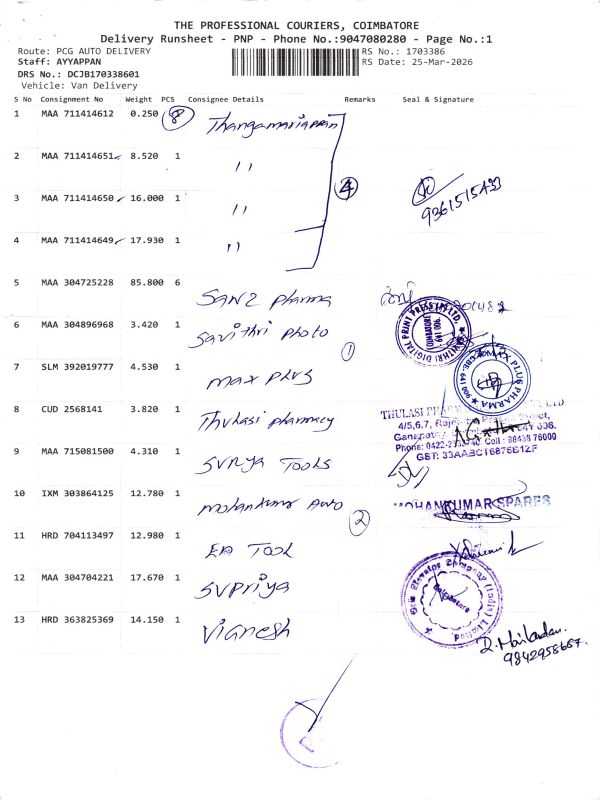 THE PROFESSIONAL COURIERS, COIMBATORE
Delivery Runsheet - PNP - Phone No.:9047080280 - Page No.:1
Route: PCG AUTO DELIVERY
RS No.: 1703386
Staff: AYYAPPAN
RS Date: 25-Mar-2026
DRS No.: DCJB170338601
Vehicle: Van Delivery
S No Consignment No Weight PCS Consignee Details Remarks Seal & Signature
1 MAA 711414612 0.250 8 Thangamariappan
2 MAA 711414651 8.520 1 "
3 MAA 711414650 16.000 1 "
4
9361515433
4 MAA 711414649 17.930 1 "
5 MAA 304725228 85.800 6 SANZ pharma
6 MAA 304896968 3.420 1 Savithri photo
SAVITHRI DIGITAL PRINT PRESS (P) LTD.
COIMBATORE 641 006.
1
7 SLM 392019777 4.530 1 max plus
MAX PLUS PHARMA
8 CUD 2568141 3.820 1 Thulasi pharmacy
THULASI
4/5,6,7,
Cell: 98438 76000
GST: 33AABCT6876B1ZF
9 MAA 715081500 4.310 1 Surya Tools
10 IXM 303864125 12.780 1 mohankumar Auto
MOHANKUMAR SPARES
2
11 HRD 704113497 12.980 1 EA TOOL
12 MAA 304704221 17.670 1 SUPriya
Elevator Company (India) Limited
Coimbatore
13 HRD 363825369 14.150 1 Vignesh
9842958687